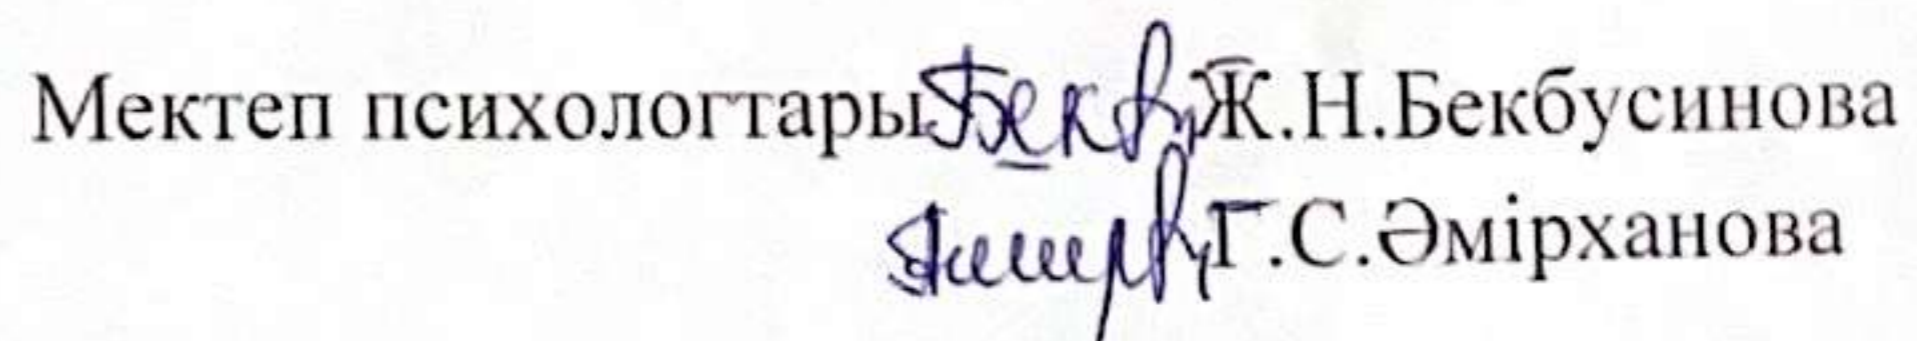 Мектеп психологтары Ж.Н.Бекбусинова
Г.С.Әмірханова